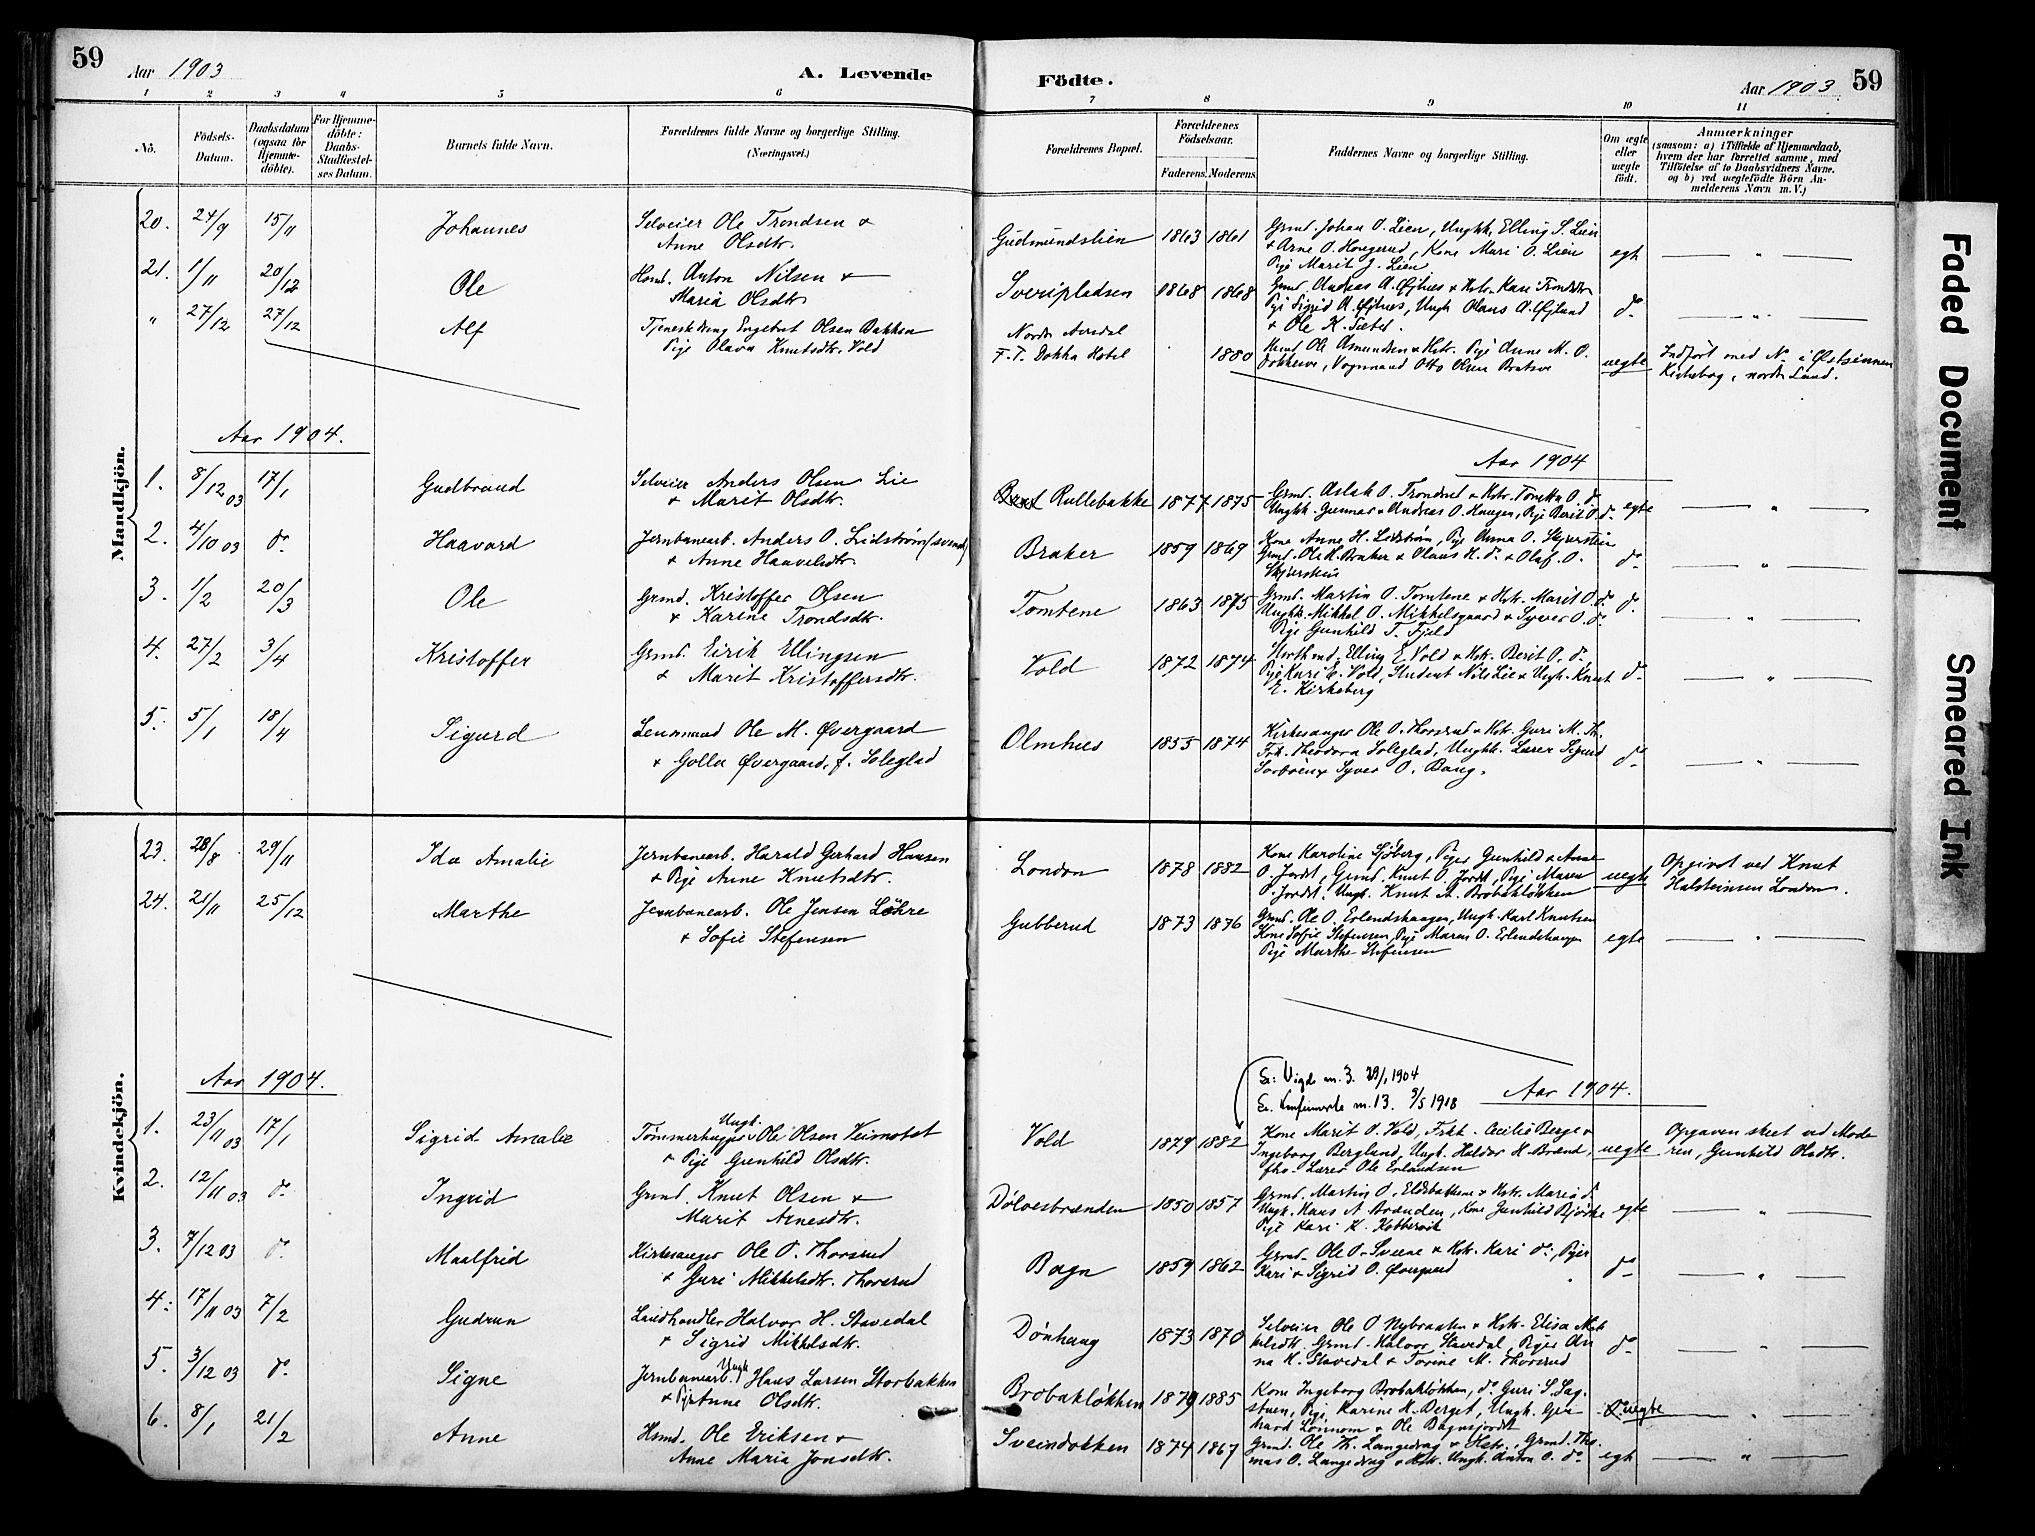 59
Aar 1903
A. Levende
Födte.
Aar 1903
59
1 2 3 4 5 6 7 8 9 10 11
No.
Födsels-Datum.
Daabsdatum (ogsaa for Hjemme-döbte).
For Hjemme-döbte: Daabs-Stadfæstel-ses Datum.
Barnets fulde Navn.
Forældrenes fulde Navne og borgerlige Stilling. (Næringsvei.)
Forældrenes Bopæl.
Forældrenes Födselsaar.
Faderens. Moderens.
Faddernes Navne og borgerlige Stilling.
Om ægte eller uægte födt.
Anmærkninger
(saasom: a) i Tilfælde af Hjemmedaab, hvem der har forrettet samme, med Tilföielse af to Daabsvidners Navne. og b) ved uægtefödte Börn An-melderens Navn m. V.)
Mandkjön.
20. 24/9 15/11 Johannes
Selveier Ole Trondsen &
Anne Olsdtr.
Gudmundslien 1863 1861
Grmd. Johan O. Lien, Ungk. Elling S. Lien
& Arne O. Haugerud, Kone Mari O. Lien
Pige Marit J. Lien
egte
21. 1/11 20/12 Ole
Hmd. Anton Nilsen &
Maria Olsdtr.
Sveripladsen 1868 1868
& Ole K. Sæter.
do
" 27/12 27/12 Alf
Tjenestedreng Engebret Olsen Bakken
Pige Olava Knutsdtr. Vold
Nordre Aurdal
F. T. Dokka Hotel 1880
Hmd. Ole Asmunden & Hstr. Pige Anne M. O.
Dokken, Vognmand Otto Olsen
uegte
Indført med No i Østsinnen
Kirkebog, nordre Land.
Aar 1904.
Aar 1904
1. 8/12 03 17/1 Gudbrand
Selveier Anders Olsen Lie
& Marit Olsdtr.
Rullebakke 1877 1875
Grmd. Aslak O. Trondrud & Hstr. Tonetta O. do
Ungk. Gunnar & Andreas O. Haugen, Pige Berit O. do
egte
2. 4/10 03 do Haavard
Jernbanearb. Anders O. Lidstrøm (svensk)
& Anne Haavelsdtr.
Braker 1859 1869
Kone Anne H. Lidstrøm, Pige Anna O. Skjerstein
Grmd. Ole H. Braker & Olaus H. do & Olaf O.
Skjerstein
do
3. 1/2 20/3 Ole
Grmd. Kristoffer Olsen
& Karine Trondsdtr.
Tomtene 1863 1875
Grmd. Martin O. Tomtene & Hstr. Marit O. do
Ungk. Mikkel O. Mikkelsgaard & Syver O. do
Pige Gunhild T. Fjeld
do
4. 27/2 3/4 Kristoffer
Grmd. Eirik Ellingsen
& Marit Kristoffersdtr.
Vold 1872 1874
Elling E. Vold & Hstr. Berit O. do
Pige Kari E. Vold, Student Nils Lie & Ungk. Knut
E. Kirkeberg
do
5. 5/1 18/4 Sigurd
Lensmand Ole M. Øvergaard
& Golla Øvergaard, f. Soleglad
Olmhus 1855 1874
Kirkesanger Ole O. Thorsrud & Hstr. Guri M. Th.
Frk. Theodora Soleglad, Ungk. Lærer Sigurd
Sorbøen & Syver O. Bang.
do
Kvindekjön.
23. 28/8 29/11 Ida Amalie
Jernbanearb. Harald Gerhard Hansen
& Pige Anne Knutsdtr.
London 1878 1882
Kone Karoline Sjøberg, Piger Gunhild & Anne
O. Jordet, Grmd. Knut O. Jordet, Pige Maren
O. Jordet, Ungk. Knut A. Brobakløkken
uegte
Opgivet ved Knut
Halsteinsen London.
24. 21/11 25/12 Marthe
Jernbanearb. Ole Jensen Løhre
& Sofie Stefensen
Gubberud 1873 1876
Grmd. Ole O. Erlendshaugen, Ungk. Karl Knutsen
Kone Sofie Stefensen, Pige Maren O. Erlendshaugen
Pige Marthe Stefensen
egte
Aar 1904.
Se: Vigde nr. 3. 29/1 1904
Se. Konfirmerte nr. 13. 9/5 1918
Aar 1904.
1. 23/11 03 17/1 Sigrid Amalie
Ungk.
Tømmerhugger Ole Olsen Veimotet
& Pige Gunhild Olsdtr.
Vold 1879 1882
Kone Marit O. Vold, Frk. Cecilie Berge &
Ingeborg Berglund, Ungk. Haldor H. Brænd,
fhv. Lærer Ole Erlandsen
uegte
Opgaven skeet ved Mode
ren, Gunhild Olsdtr.
2. 12/11 03 do Ingrid
Grmd. Knut Olsen &
Marit Arnesdtr.
Dølvesbrænden 1850 1857
Grmd. Martin O. Eldsbakkene & Hstr. Maria do
Ungk. Hans A. Brænden, Kone Gunhild Bjørke
Pige Kari K. Kobbervik
egte
3. 7/12 03 do Maalfrid
Kirkesanger Ole O. Thorsrud
& Guri Mikkelsdtr. Thorsrud
Bagn 1859 1862
Grmd. Ole O. Sveene & Hstr. Kari do, Piger
Kari & Sigrid O. Øvergaard
do
4. 17/11 03 7/2 Gudrun
Landhandler Halvor H. Stavedal
& Sigrid Mikkelsdtr.
Dønhaug 1873 1870
Selveier Ole O. Nybraaten & Hstr. Elisa Mik
kelsdtr. Grmd. Halvor Stavedal, Piger An
na H. Stavedal & Torine M. Thorsrud
do
5. 3/12 03 do Signe
Ungk.
Jernbanearb. Hans Larsen Storbakken
& Pige Anne Olsdtr.
Brobakløkken 1879 1885
Kone Ingeborg Brobakløkken, do Guri S. Sag-
stuen, Pige Karine H. Berget, Ungk. Ger
hard Lønnom & Ole Bagnsjordet
do uegte
6. 8/1 21/2 Anne
Hsmd. Ole Eriksen &
Anne Maria Jonsdtr.
Sveindokken 1874 1867
Grmd. Ole Th. Langedrag & Hstr., Grmd. Tho-
mas O. Langedrag & Hstr. Ungk. Anton O. do
egte
Faded Document
Smeared Ink